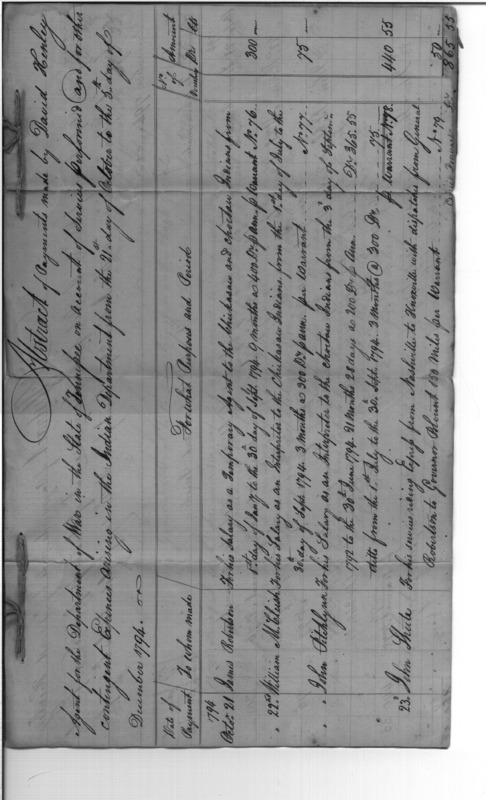 Abstract of Payments made by David Henley
Agent for the Department of War in the State of Tennessee on account of Services performed and for other
contingent Expences arising in the Indian Department from the 21st day of October to the 3d day of
December 1794.
Date of Payment
To whom made
For what Purposes and Period
No. of Voucher
Amount
Dr Cts
1794
Octor. 21 James Robertson For his Salary as a Temporary Agent to the Chickasaw and Choctaw Indians from
1st day of Jany to the 30 day of Septr. 1794. 9 months @ 400 Drs p Ann. p Warrant No. 76. 300 —
" 22d William McClish For his Salary as an Interpreter to the Chickasaw Indians from the 1st day of July to the
30 day of Sept. 1794. 3 months @ 300 Drs p Ann. per Warrant No. 77. 75 —
" John Pitchlynn For his Salary as an Interpreter to the Choctaw Indians from the 3d day of Septemr.
1792 to the 30th June 1794. 21 Months 28 days @ 200 Drs p Ann. Drs 365.55
ditto from the 1st July to the 30. Septr. 1794. 3 Months @ 300 Drs. 75
p Warrant No. 78. 440 55
23d John Shute For his services riding Express from Nashville to Knoxville with dispatches from General
Robertson to Governor Blount 180 Miles per Warrant No. 79. 50 —
865 55